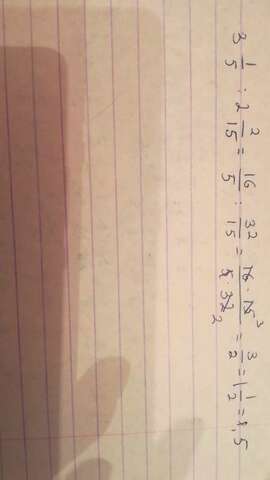 3 1/5 : 2 2/15 = 16/5 : 32/15 = 16 · 15 3/5 · 32 2 = 3/2 = 1 1/2 = 1,5